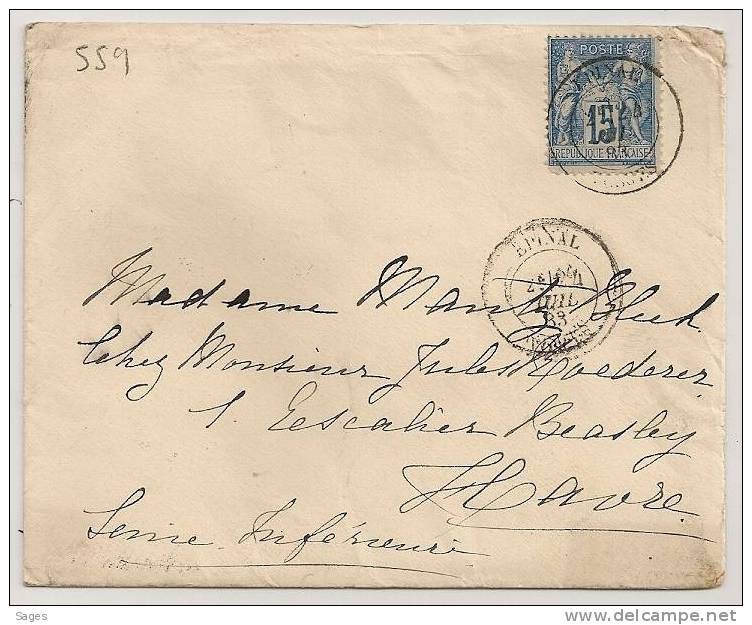 559
POSTE
15
REPUBLIQUE FRANÇAISE
EPINAL
EPINAL
JUIL
83
VOSGES
Madame Mantz Bluch
Chez Monsieur Jules Roederer
1. Escalier Beasley
Havre
Seine Inférieure
Sages
www.delcampe.net